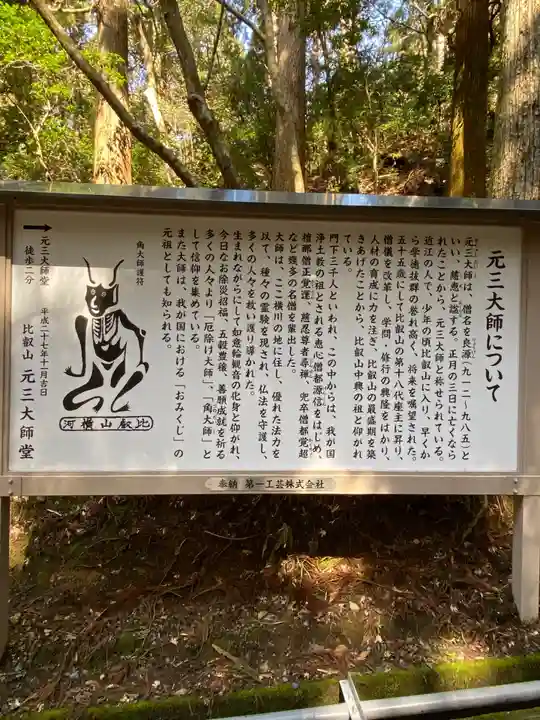 元三大師について
元三大師は、僧名を良源(九一二-九八五)と
いい、慈恵と諡する。正月の三日に亡くなら
れたことから、元三大師と称せられている。
近江の人で、少年の頃比叡山に入り、早くか
ら学徳抜群の誉れ高く、将来を嘱望された。
五十五歳にして比叡山の第十八代座主に昇り、
僧儀を改革し、学問、修行の興隆をはかり、
人材の育成に力を注ぎ、比叡山の最盛期を築
きあげたことから、比叡山中興の祖と仰がれ
ている。
門下三千人といわれ、この中からは、我が国
浄土教の祖とされる恵心僧都源信をはじめ、
檀那僧正覚運、慈忍尊者尋禅、兜卒僧都覚超
など幾多の名僧を輩出した。
大師は、ここ横川の地に住し、優れた法力を
以て、種々の霊験を現され、仏法を守護し、
多くの人々を救い護り導かれた。
生まれながらにして如意輪観音の化身と仰がれ、
今日なお除災招福、五穀豊穣、善願成就を祈る
多くの人々より「厄除け大師」、「角大師」と
して信仰を集めている。
また大師は、我が国における「おみくじ」の
元祖としても知られる。
角大師護符
比叡山横河
平成二十七年十一月吉日
比叡山 元三大師堂
→元三大師堂
徒歩二分
奉納 第一工芸株式会社